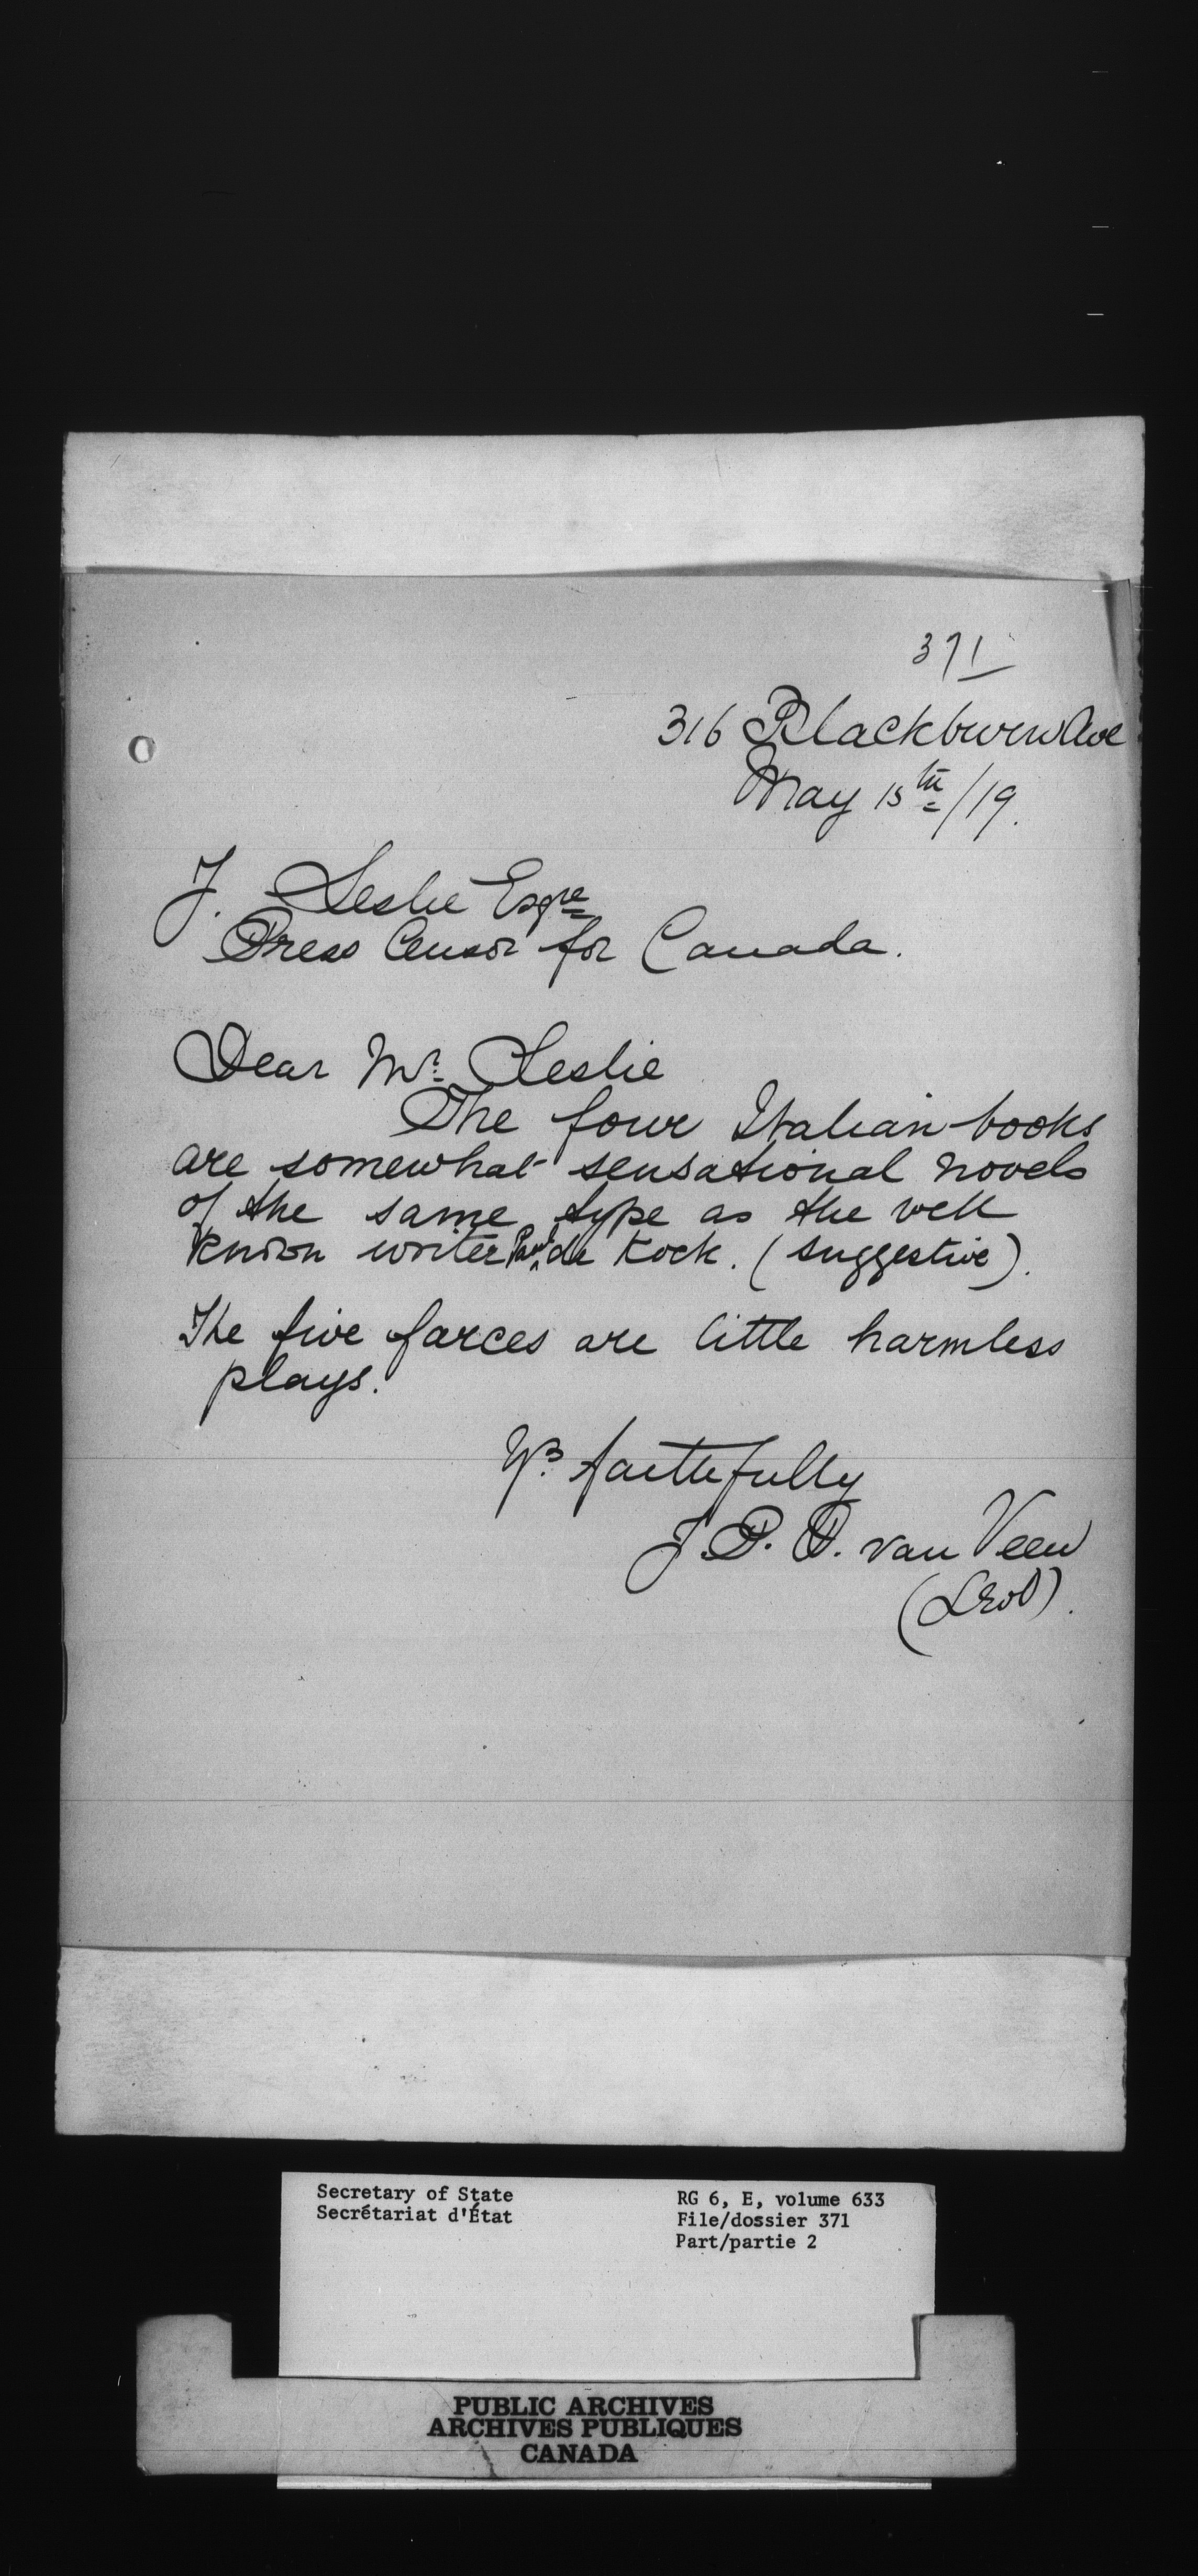 371
316 Blackburn Ave
May 15th/19.
J. Leslie Esqre
Press Censor for Canada.
Dear Mr. Leslie
The four Italian books
are somewhat sensational novels
of the same type as the well
known writer Paul de Kock. (suggestive).
The five farces are little harmless
plays.
Yrs. faithfully
J. P. D. van Veen
Secretary of State
Secrétariat d'État
RG 6, E, volume 633
File/dossier 371
Part/partie 2
PUBLIC ARCHIVES
ARCHIVES PUBLIQUES
CANADA